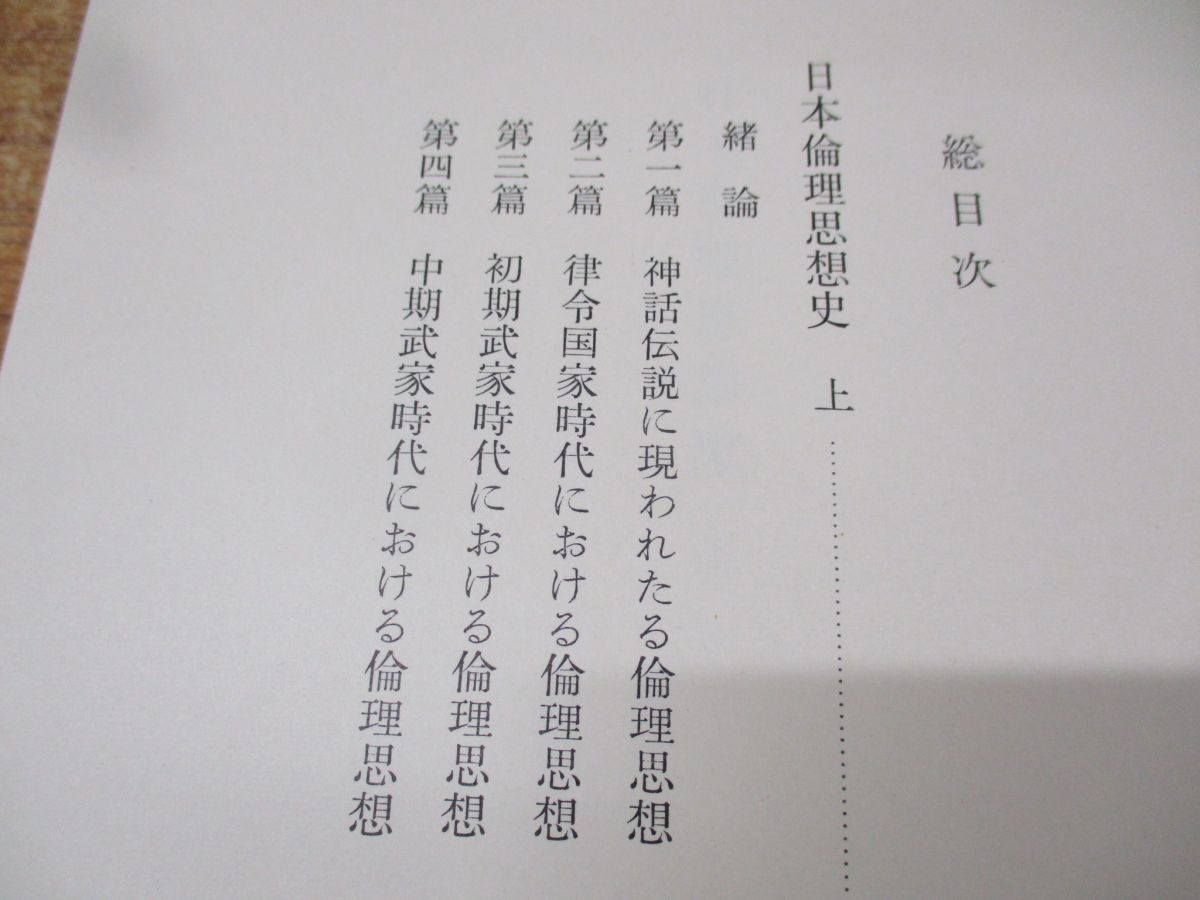 総目次
日本倫理思想史 上……………………
緒論
第一篇 神話伝説に現われたる倫理思想
第二篇 律令国家時代における倫理思想
第三篇 初期武家時代における倫理思想
第四篇 中期武家時代における倫理思想